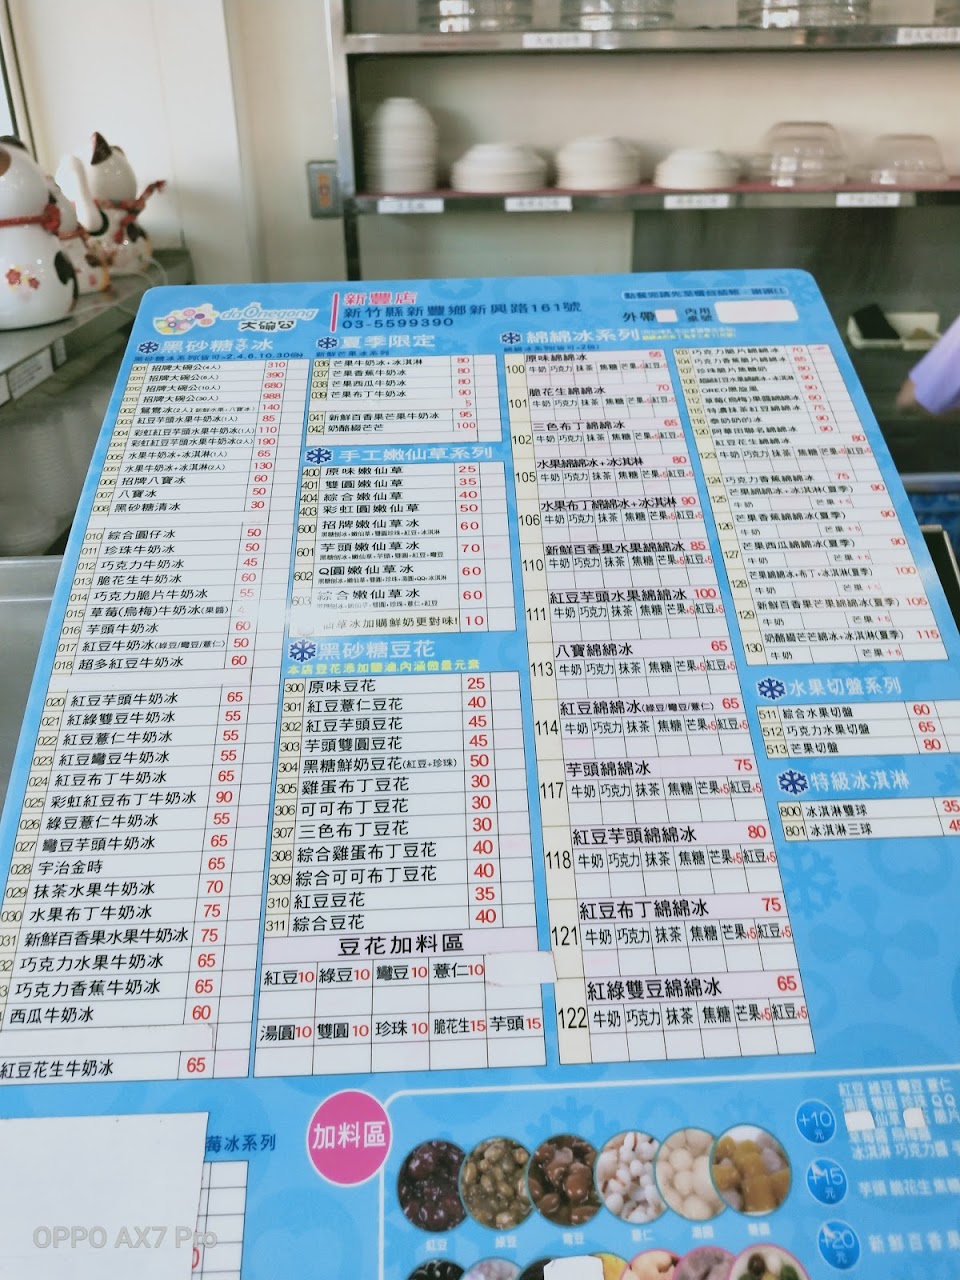 da Onegong
大碗公
新豐店
新竹縣新豐鄉新興路161號
03-5599390
外帶
內用
桌號
黑砂糖冰
001 招牌大碗公(4人) 310
招牌大碗公(6人) 390
招牌大碗公(10人) 680
招牌大碗公(30人) 988
140
紅豆芋頭水果牛奶冰(1人) 85
004 彩虹紅豆芋頭水果牛奶冰(1人) 110
彩虹紅豆芋頭水果牛奶冰(2人) 190
005 水果牛奶冰+冰淇淋(1人) 65
水果牛奶冰+冰淇淋(2人) 130
006 招牌八寶冰 60
007 八寶冰 50
008 黑砂糖清冰 30
010 綜合圓仔冰 50
011 珍珠牛奶冰 50
012 巧克力牛奶冰 45
013 脆花生牛奶冰 60
014 巧克力脆片牛奶冰 55
015 草莓(烏梅)牛奶冰(果醬)
016 芋頭牛奶冰 60
017 紅豆牛奶冰(綠豆/彎豆/薏仁) 50
018 超多紅豆牛奶冰 60
020 紅豆芋頭牛奶冰 65
021 紅綠雙豆牛奶冰 55
022 紅豆薏仁牛奶冰 55
023 紅豆彎豆牛奶冰 55
024 紅豆布丁牛奶冰 65
025 彩虹紅豆布丁牛奶冰 90
026 綠豆薏仁牛奶冰 55
027 彎豆芋頭牛奶冰 65
028 宇治金時 65
029 抹茶水果牛奶冰 70
030 水果布丁牛奶冰 75
031 新鮮百香果水果牛奶冰 75
32 巧克力水果牛奶冰 65
3 巧克力香蕉牛奶冰 65
西瓜牛奶冰 60
紅豆花生牛奶冰 65
夏季限定
新鮮芒果冰系列
036 芒果牛奶冰+冰淇淋 80
037 芒果香蕉牛奶冰 80
038 芒果西瓜牛奶冰 80
039 芒果布丁牛奶冰 90
5
041 新鮮百香果芒果牛奶冰 95
042 奶酪綴芒芒 100
手工嫩仙草系列
400 原味嫩仙草 25
401 雙圓嫩仙草 35
404 綜合嫩仙草 40
403 彩虹圓嫩仙草 50
600 招牌嫩仙草冰 60
601 芋頭嫩仙草冰 70
602 Q圓嫩仙草冰 60
603 綜合嫩仙草冰 60
仙草冰加購鮮奶更對味! 10
黑砂糖豆花
本店豆花添加鹽滷,內涵微量元素
300 原味豆花 25
301 紅豆薏仁豆花 40
302 紅豆芋頭豆花 45
303 芋頭雙圓豆花 45
304 黑糖鮮奶豆花(紅豆+珍珠) 50
305 雞蛋布丁豆花 30
306 可可布丁豆花 30
307 三色布丁豆花 30
308 綜合雞蛋布丁豆花 40
309 綜合可可布丁豆花 40
310 紅豆豆花 35
311 綜合豆花 40
豆花加料區
紅豆10 綠豆10 彎豆10 薏仁10
湯圓10 雙圓10 珍珠10 脆花生15 芋頭15
綿綿冰系列
100 原味綿綿冰 55
牛奶 巧克力 抹茶 焦糖 芒果+5 紅豆+5
101 脆花生綿綿冰 70
牛奶 巧克力 抹茶 焦糖 芒果+5 紅豆+5
102 三色布丁綿綿冰 65
牛奶 巧克力 抹茶 焦糖 芒果+5 紅豆+5
105 水果綿綿冰+冰淇淋 80
牛奶 巧克力 抹茶 焦糖 芒果+5 紅豆+5
106 水果布丁綿綿冰+冰淇淋 90
牛奶 巧克力 抹茶 焦糖 芒果+5 紅豆+5
110 新鮮百香果水果綿綿冰 85
牛奶 巧克力 抹茶 焦糖 芒果+5 紅豆+5
111 紅豆芋頭水果綿綿冰 100
牛奶 巧克力 抹茶 焦糖 芒果+5 紅豆+5
113 八寶綿綿冰 65
牛奶 巧克力 抹茶 焦糖 芒果+5 紅豆+5
114 紅豆綿綿冰(綠豆/彎豆/薏仁) 65
牛奶 巧克力 抹茶 焦糖 芒果+5 紅豆+5
117 芋頭綿綿冰 75
牛奶 巧克力 抹茶 焦糖 芒果+5 紅豆+5
118 紅豆芋頭綿綿冰 80
牛奶 巧克力 抹茶 焦糖 芒果+5 紅豆+5
121 紅豆布丁綿綿冰 75
牛奶 巧克力 抹茶 焦糖 芒果+5 紅豆+5
122 紅綠雙豆綿綿冰 65
牛奶 巧克力 抹茶 焦糖 芒果+5 紅豆+5
103 巧克力脆片綿綿冰 70
104 巧克力香蕉脆片綿綿冰
107 珍珠脆片焦糖奶 80
109 OREO黑旋風 90
紅豆花生綿綿冰 80
124 巧克力香蕉綿綿冰
125 芒果綿綿冰+冰淇淋(夏季) 90
126 芒果香蕉綿綿冰(夏季) 90
127 芒果西瓜綿綿冰(夏季) 90
128 芒果綿綿冰+布丁+冰淇淋(夏季) 100
129 新鮮百香果芒果綿綿冰(夏季) 105
牛奶 芒果+5
130 奶酪綴芒芒綿冰+冰淇淋(夏季) 115
牛奶 芒果+5
水果切盤系列
511 綜合水果切盤 60
512 巧克力水果切盤 65
513 芒果切盤 80
特級冰淇淋
800 冰淇淋雙球 35
801 冰淇淋三球 45
莓冰系列
加料區
紅豆 綠豆 彎豆 薏仁 湯圓 雙圓
+10元
紅豆 綠豆 彎豆 薏仁
湯圓 雙圓 珍珠 QQ
冰淇淋 巧克力醬
+15元
芋頭 脆花生 焦糖
+20元
新鮮百香果
OPPO AX7 Pro